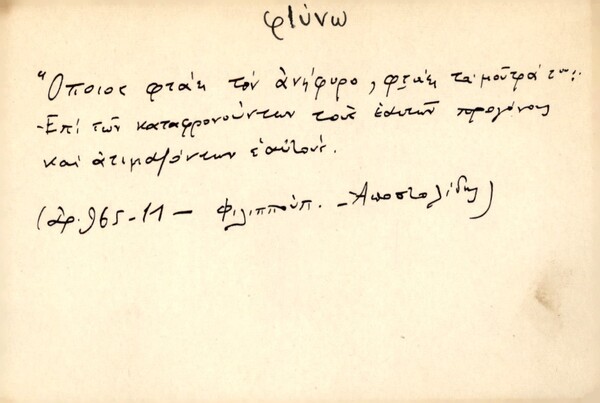 φτύνω
"Όποιος φτάει τον ανήφορο, φτάει τα μούτρα του.
- Επί των καταφρονούντων τους εαυτών προγόνους
και ατιμαζόντων εαυτούς.
(αρ. 965-11 - Φιλιππούπ. - Αποστολίδης)